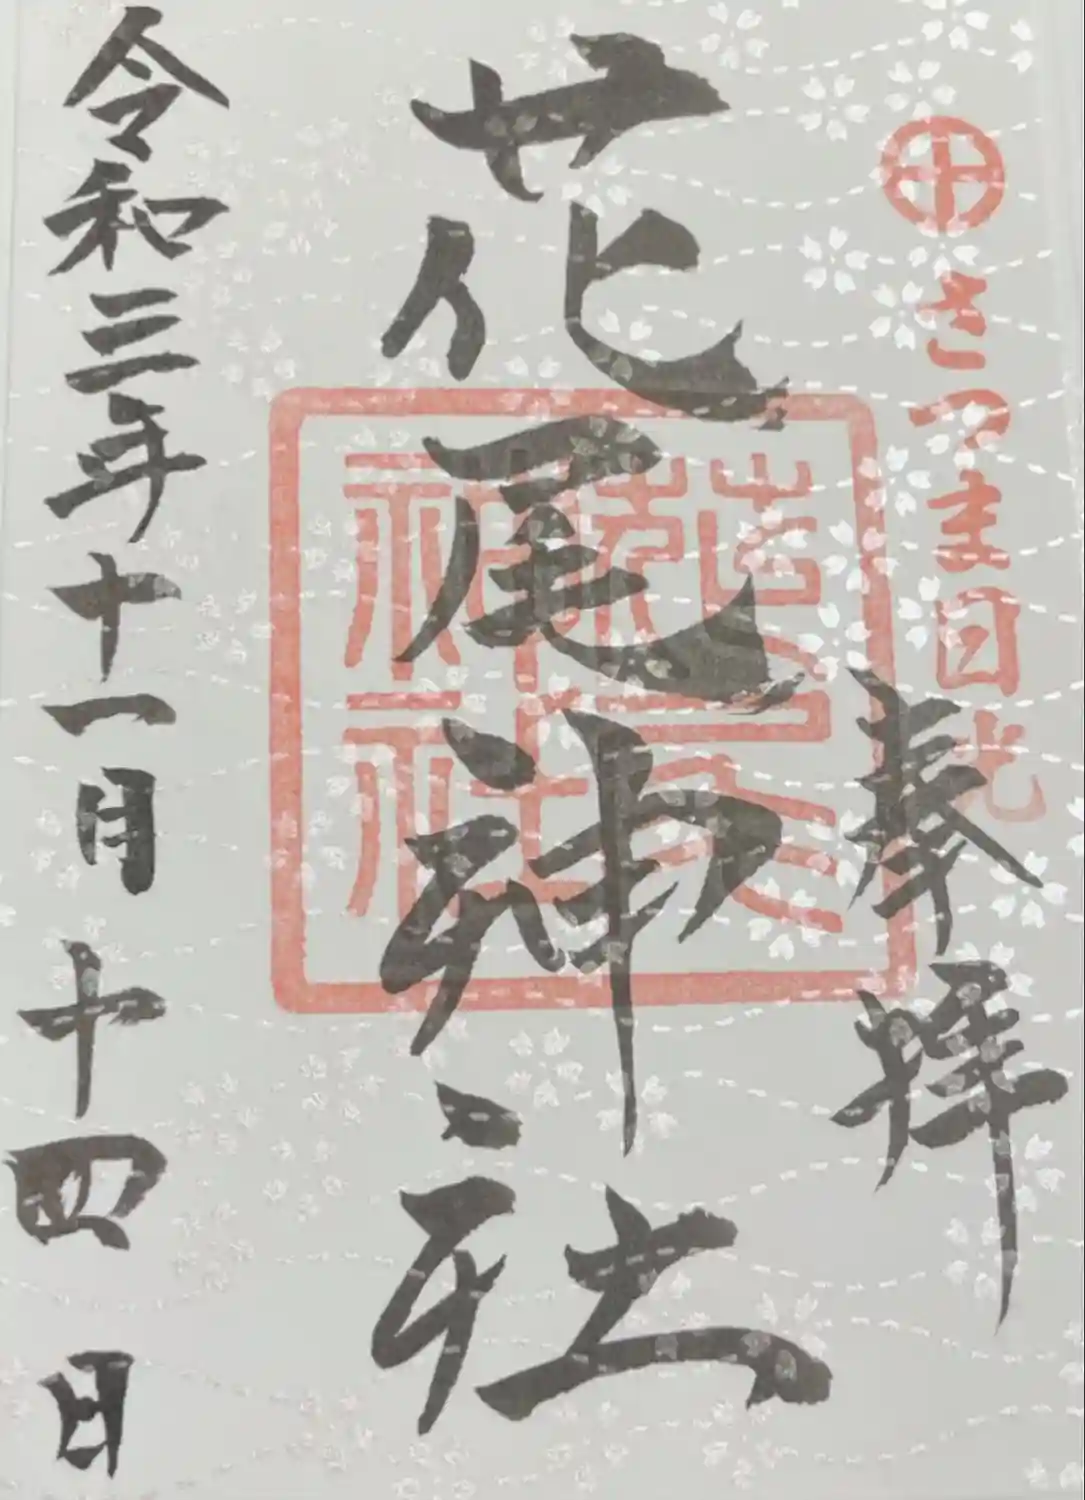 さつま日光
奉拝
花尾神社
花尾神社
令和三年十一月十四日